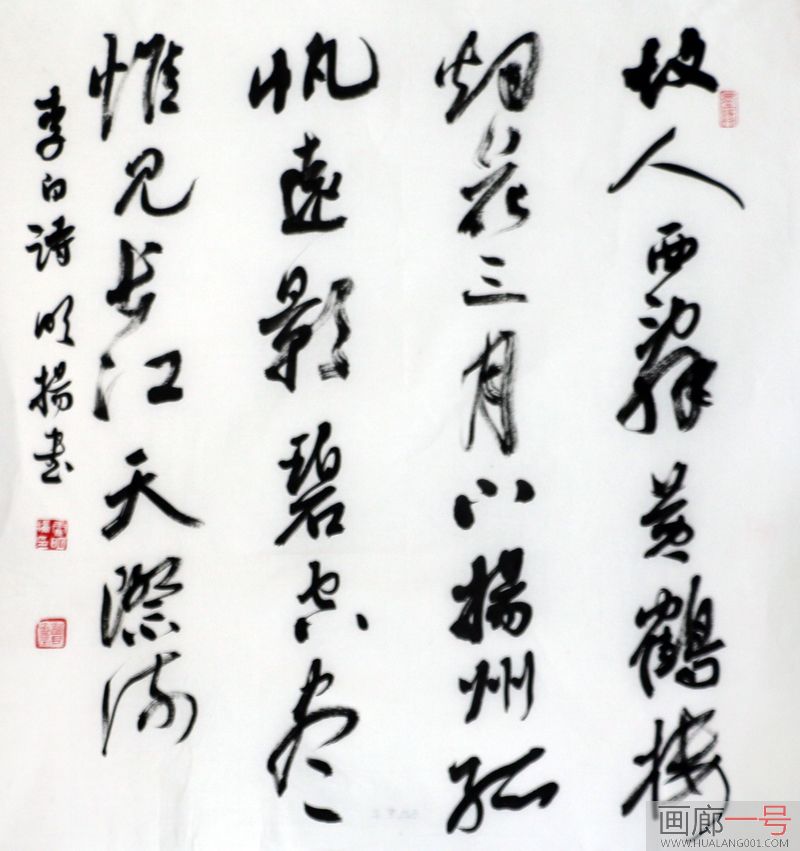 故人西辭黄鶴楼
烟花三月下揚州孤
帆遠影碧空尽
惟见长江天際流
李白詩 明揚書
画廊一号
WWW.HUALANG001.COM